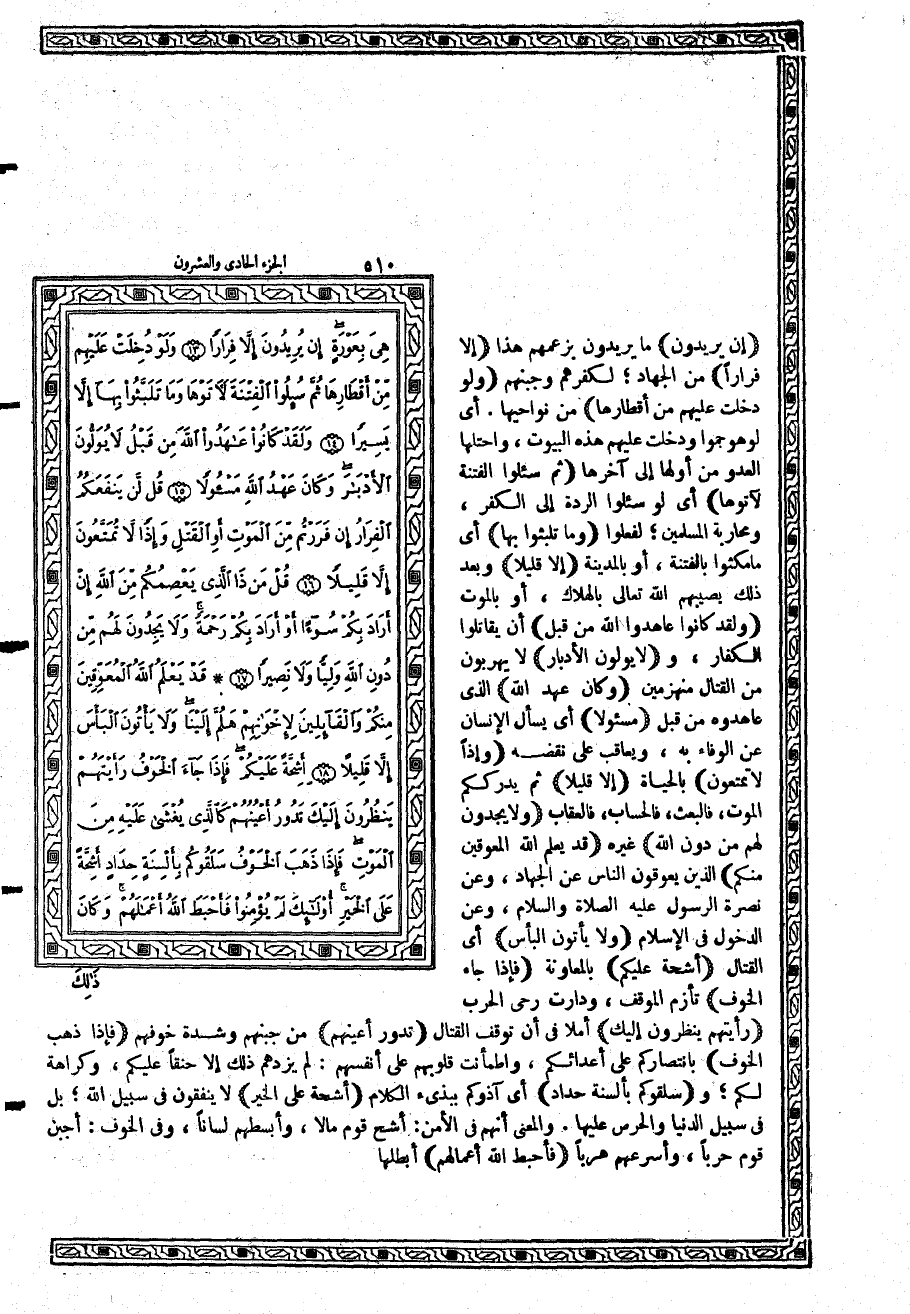 ٥١٠ الجزء الحادى والعشرون
هِىَ بِعَوْرَةٍۖ إِن يُرِيدُونَ إِلَّا فِرَارًا ⁠١٣ وَلَوْ دُخِلَتْ عَلَيْهِم
مِّنْ أَقْطَارِهَا ثُمَّ سُئِلُوا۟ ٱلْفِتْنَةَ لَـَٔاتَوْهَا وَمَا تَلَبَّثُوا۟ بِهَآ إِلَّا
يَسِيرًا ١٤ وَلَقَدْ كَانُوا۟ عَٰهَدُوا۟ ٱللَّهَ مِن قَبْلُ لَا يُوَلُّونَ
ٱلْأَدْبَٰرَۚ وَكَانَ عَهْدُ ٱللَّهِ مَسْـُٔولًا ١٥ قُل لَّن يَنفَعَكُمُ
ٱلْفِرَارُ إِن فَرَرْتُم مِّنَ ٱلْمَوْتِ أَوِ ٱلْقَتْلِ وَإِذًا لَّا تُمَتَّعُونَ
إِلَّا قَلِيلًا ١٦ قُلْ مَن ذَا ٱلَّذِى يَعْصِمُكُم مِّنَ ٱللَّهِ إِنْ
أَرَادَ بِكُمْ سُوٓءًا أَوْ أَرَادَ بِكُمْ رَحْمَةًۚ وَلَا يَجِدُونَ لَهُم مِّن
دُونِ ٱللَّهِ وَلِيًّا وَلَا نَصِيرًا ١٧ * قَدْ يَعْلَمُ ٱللَّهُ ٱلْمُعَوِّقِينَ
مِنكُمْ وَٱلْقَآئِلِينَ لِإِخْوَٰنِهِمْ هَلُمَّ إِلَيْنَاۖ وَلَا يَأْتُونَ ٱلْبَأْسَ
إِلَّا قَلِيلًا ١٨ أَشِحَّةً عَلَيْكُمْۖ فَإِذَا جَآءَ ٱلْخَوْفُ رَأَيْتَهُمْ
يَنظُرُونَ إِلَيْكَ تَدُورُ أَعْيُنُهُمْ كَٱلَّذِى يُغْشَىٰ عَلَيْهِ مِنَ
ٱلْمَوْتِۖ فَإِذَا ذَهَبَ ٱلْخَوْفُ سَلَقُوكُم بِأَلْسِنَةٍ حِدَادٍ أَشِحَّةً
عَلَى ٱلْخَيْرِۚ أُو۟لَٰٓئِكَ لَمْ يُؤْمِنُوا۟ فَأَحْبَطَ ٱللَّهُ أَعْمَٰلَهُمْۚ وَكَانَ
ذَٰلِكَ
(إن يريدون) ما يريدون بزعمهم هذا (إلا
فراراً) من الجهاد ؛ لكفرهم وجبنهم (ولو
دخلت عليهم من أقطارها) من نواحيها . أى
لوهوجموا ودخلت عليهم هذه البيوت ، واحتلها
العدو من أولها إلى آخرها (ثم سئلوا الفتنة
لآتوها) أى لو سئلوا الردة إلى الكفر ،
ومحاربة المسلمين ؛ لفعلوا (وما تلبثوا بها) أى
مامكثوا بالفتنة ، أو بالمدينة (إلا قليلا) وبعد
ذلك يصيبهم الله تعالى بالهلاك ، أو بالموت
(ولقد كانوا عاهدوا الله من قبل) أن يقاتلوا
الكفار ، و (لايولون الأدبار) لا يهربون
من القتال منهزمين (وكان عهد الله) الذى
عاهدوه من قبل (مسئولا) أى يسأل الإنسان
عن الوفاء به ، ويعاقب على نقضه (وإذاً
لاتمتعون) بالحياة (إلا قليلا) ثم يدرككم
الموت، فالبعث، فالحساب، فالعقاب (ولايجدون
لهم من دون الله) غيره (قد يعلم الله المعوقين
منكم) الذين يعوقون الناس عن الجهاد ، وعن
نصرة الرسول عليه الصلاة والسلام ، وعن
الدخول فى الإسلام (ولا يأتون البأس) أى
القتال (أشحة عليكم) بالمعاونة (فإذا جاء
الخوف) تأزم الموقف ، ودارت رحى الحرب
(رأيتهم ينظرون إليك) أملا فى أن توقف القتال (تدور أعينهم) من جبنهم وشدة خوفهم (فإذا ذهب
الخوف) بانتصاركم على أعدائكم ، واطمأنت قلوبهم على أنفسهم : لم يزدهم ذلك إلا حنقاً عليكم ، وكراهة
لكم ؛ و (سلقوكم بألسنة حداد) أى آذوكم ببذىء الكلام (أشحة على الخير) لا ينفقون فى سبيل الله ؛ بل
فى سبيل الدنيا والحرص عليها . والمعنى أنهم فى الأمن: أشح قوم مالا ، وأبسطهم لساناً ، وفى الخوف : أجبن
قوم حرباً ، وأسرعهم هرباً (فأحبط الله أعمالهم) أبطلها